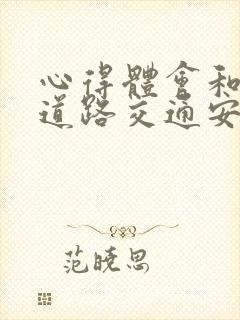 心得體會和
道路交通安
范曉思